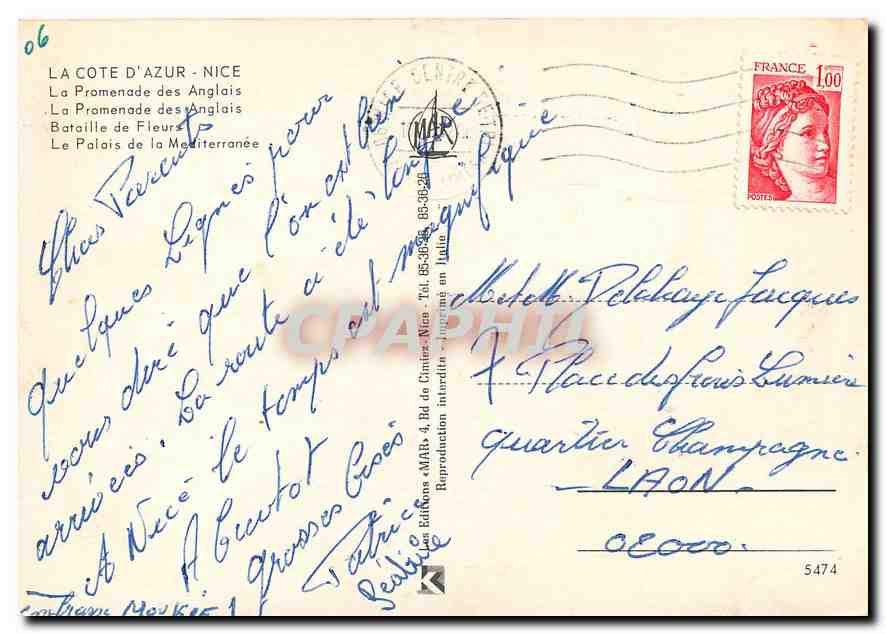 06
LA COTE D'AZUR - NICE
La Promenade des Anglais
La Promenade des Anglais
Bataille de Fleurs
Le Palais de la Mediterranée
MAR
FRANCE 1,00
POSTES
Chers Parents
quelques lignes pour
vous dire que l'on est bien
arrivés. La route a été longue
A Nice le temps est magnifique
A bientot
grosses bises
Patrice
Les Editions «MAR» 4, Bd de Cimiez - Nice - Tél. 85-36-26 85-36-28
Reproduction interdite - Imprimé en Italie
CPAPHIL
K
M et M Delahaye Jacques
7 Place des frères Lumière
quartier Champagne
LAON
02000.
5474